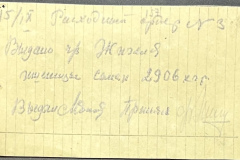 15/IX Расходный ордер № 3
Выдано гр.
пшеницы семян 2906 кгр
Выдал Принял